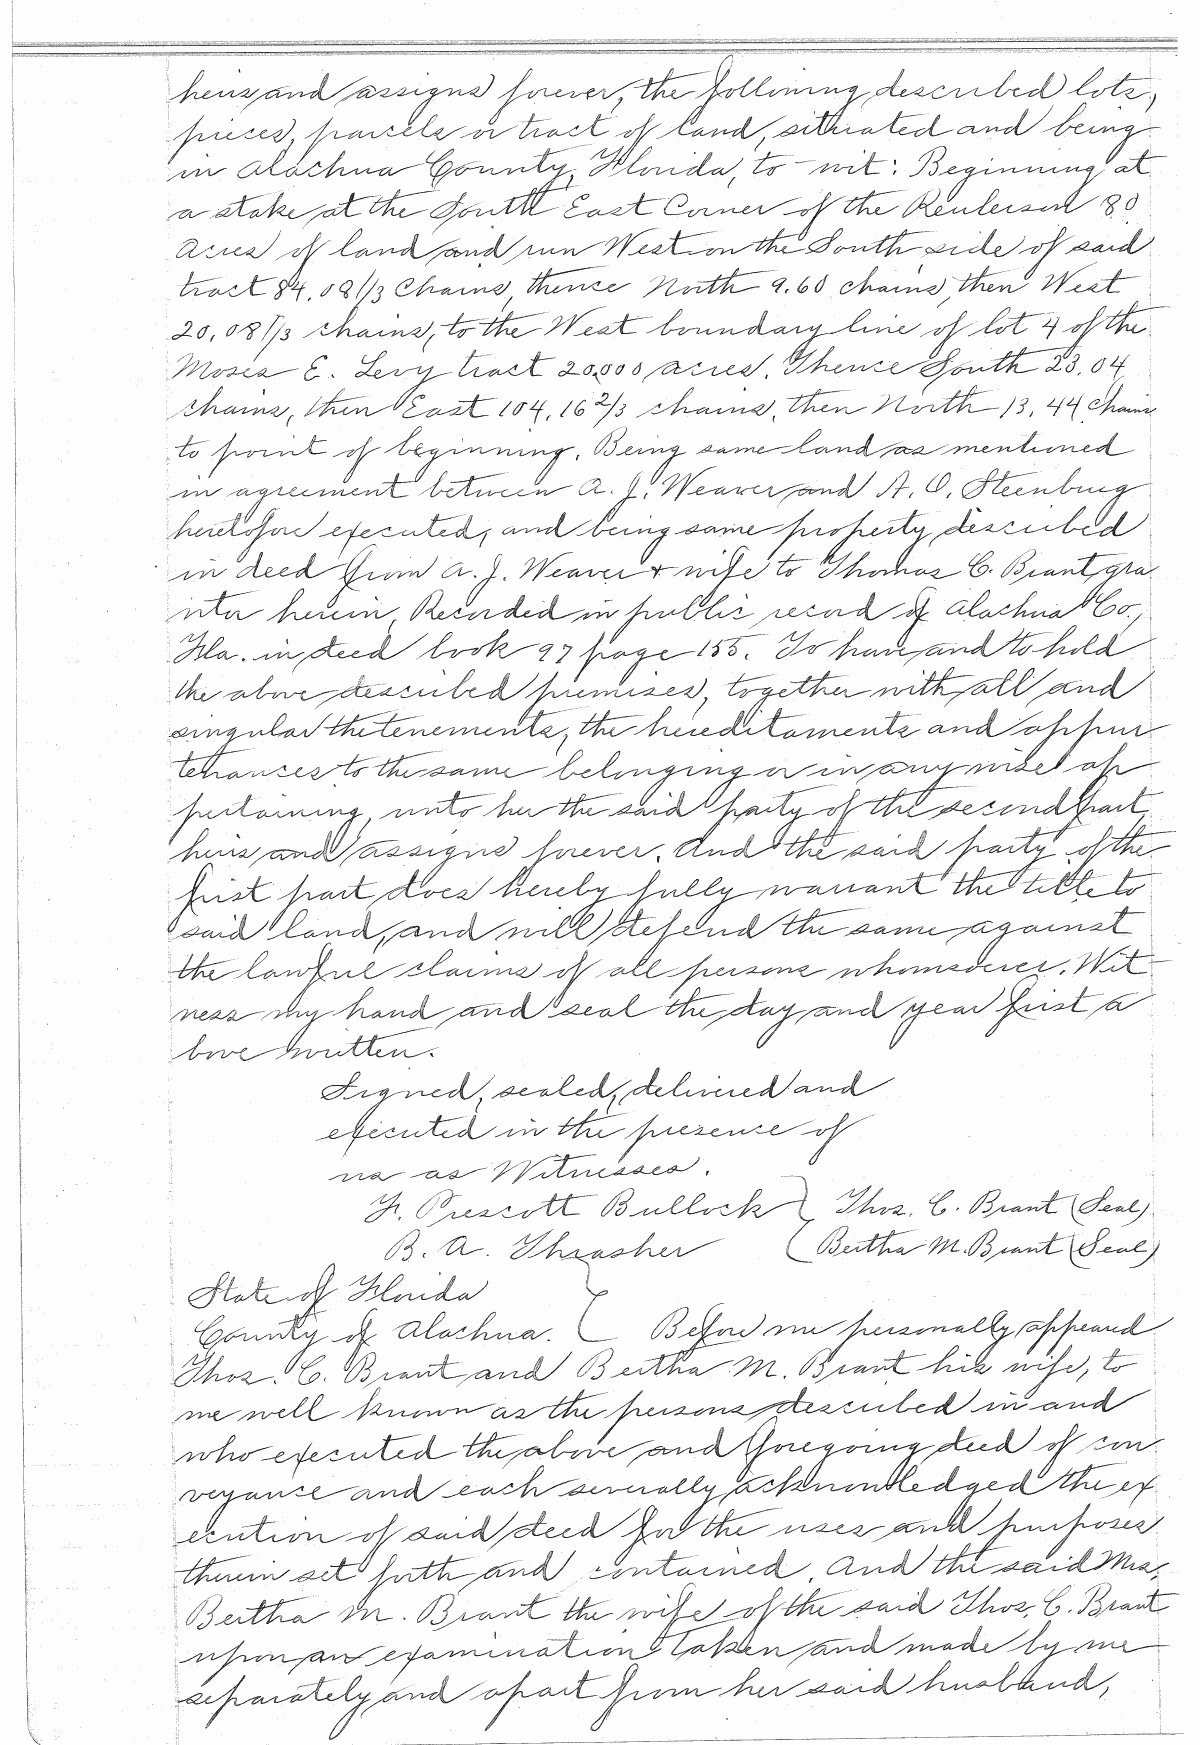 heirs and assigns forever, the following described lots,
pieces, parcels or tract of land, situated and being
in Alachua County, Florida, to-wit: Beginning at
a stake at the South East Corner of the Reulerson 80
Acres of land and run West on the South side of said
tract 84.08 1/3 Chains, thence North 9.60 chains, then West
20,08 1/3 chains, to the West boundary line of lot 4 of the
Moses E. Levy tract 20,000 acres. Thence South 23.04
chains, then East 104.16 2/3 chains, then North 13.44 Chains
to point of beginning. Being same land as mentioned
in agreement between A. J. Weaver and A. O. Steenburg
heretofore executed, and being same property described
in deed from A. J. Weaver & wife to Thomas C. Brant, gra
ntor herein, Recorded in public record of Alachua Co.,
Fla. in deed book 97 page 155. To have and to hold
the above described premises, together with all and
singular the tenements, the hereditaments and appur
tenances to the same belonging or in any wise ap
pertaining, unto her the said party of the second part,
heirs and assigns forever. And the said party of the
first part does hereby fully warrant the title to
said land, and will defend the same against
the lawful claims of all persons whomsoever. Wit
ness my hand and seal the day and year first a
bove written.
Signed, sealed, delivered and
executed in the presence of
us as Witnesses.
Fr. Prescott Bullock } Thos. C. Brant (Seal)
B. A. Thrasher ( Bertha M. Brant (Seal)
State of Florida
County of Alachua. } Before me personally appeared
Thos. C. Brant and Bertha M. Brant his wife, to
me well known as the persons described in and
who executed the above and foregoing deed of con
veyance and each severally acknowledged the ex
ecution of said deed for the uses and purposes
therein set forth and contained. And the said Mrs.
Bertha M. Brant the wife of the said Thos. C. Brant
upon an examination taken and made by me
separately and apart from her said husband,